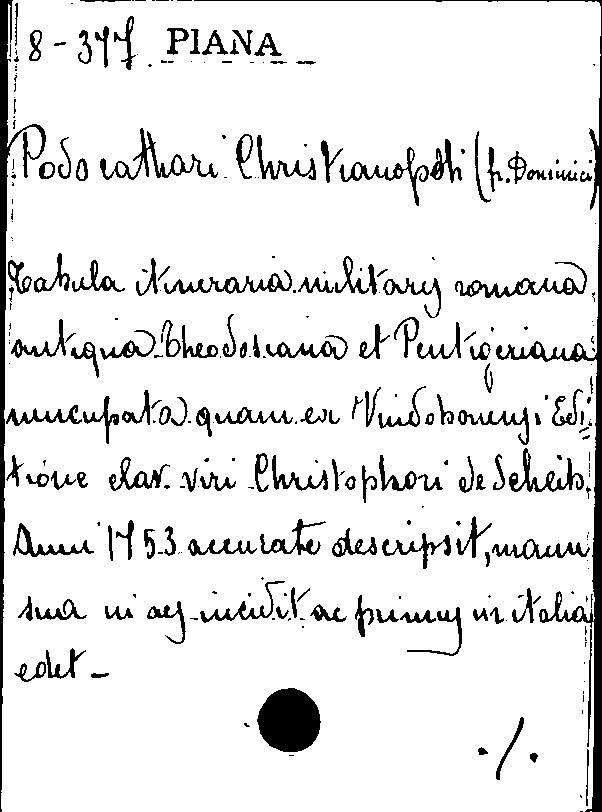 8-377. PIANA
Podocathari Christianopoli (fr. Dominici)
Tabula itineraria militaris romana
antiqua Theodosiana et Peutigeriana
nuncupata quam ex Vindobonensi Edi=
tione clar. viri Christophori de Scheib.
Anni 1753 accurate descripsit, manu
sua in aes incidit ac primus in italia
edet -
./.